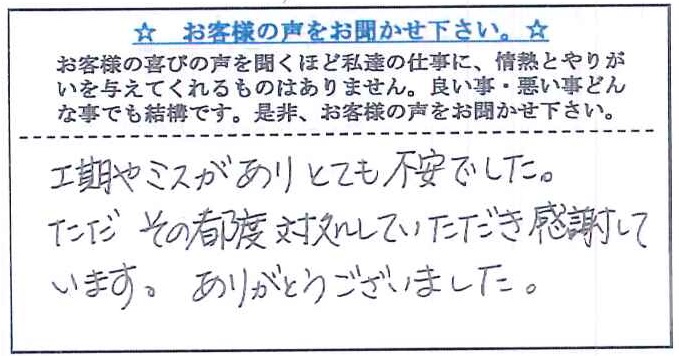 ☆ お客様の声をお聞かせ下さい。☆
お客様の喜びの声を聞くほど私達の仕事に、情熱とやりが
いを与えてくれるものはありません。良い事・悪い事どん
な事でも結構です。是非、お客様の声をお聞かせ下さい。
工期やミスがありとても不安でした。
ただ その都度対処していただき感謝して
います。 ありがとうございました。